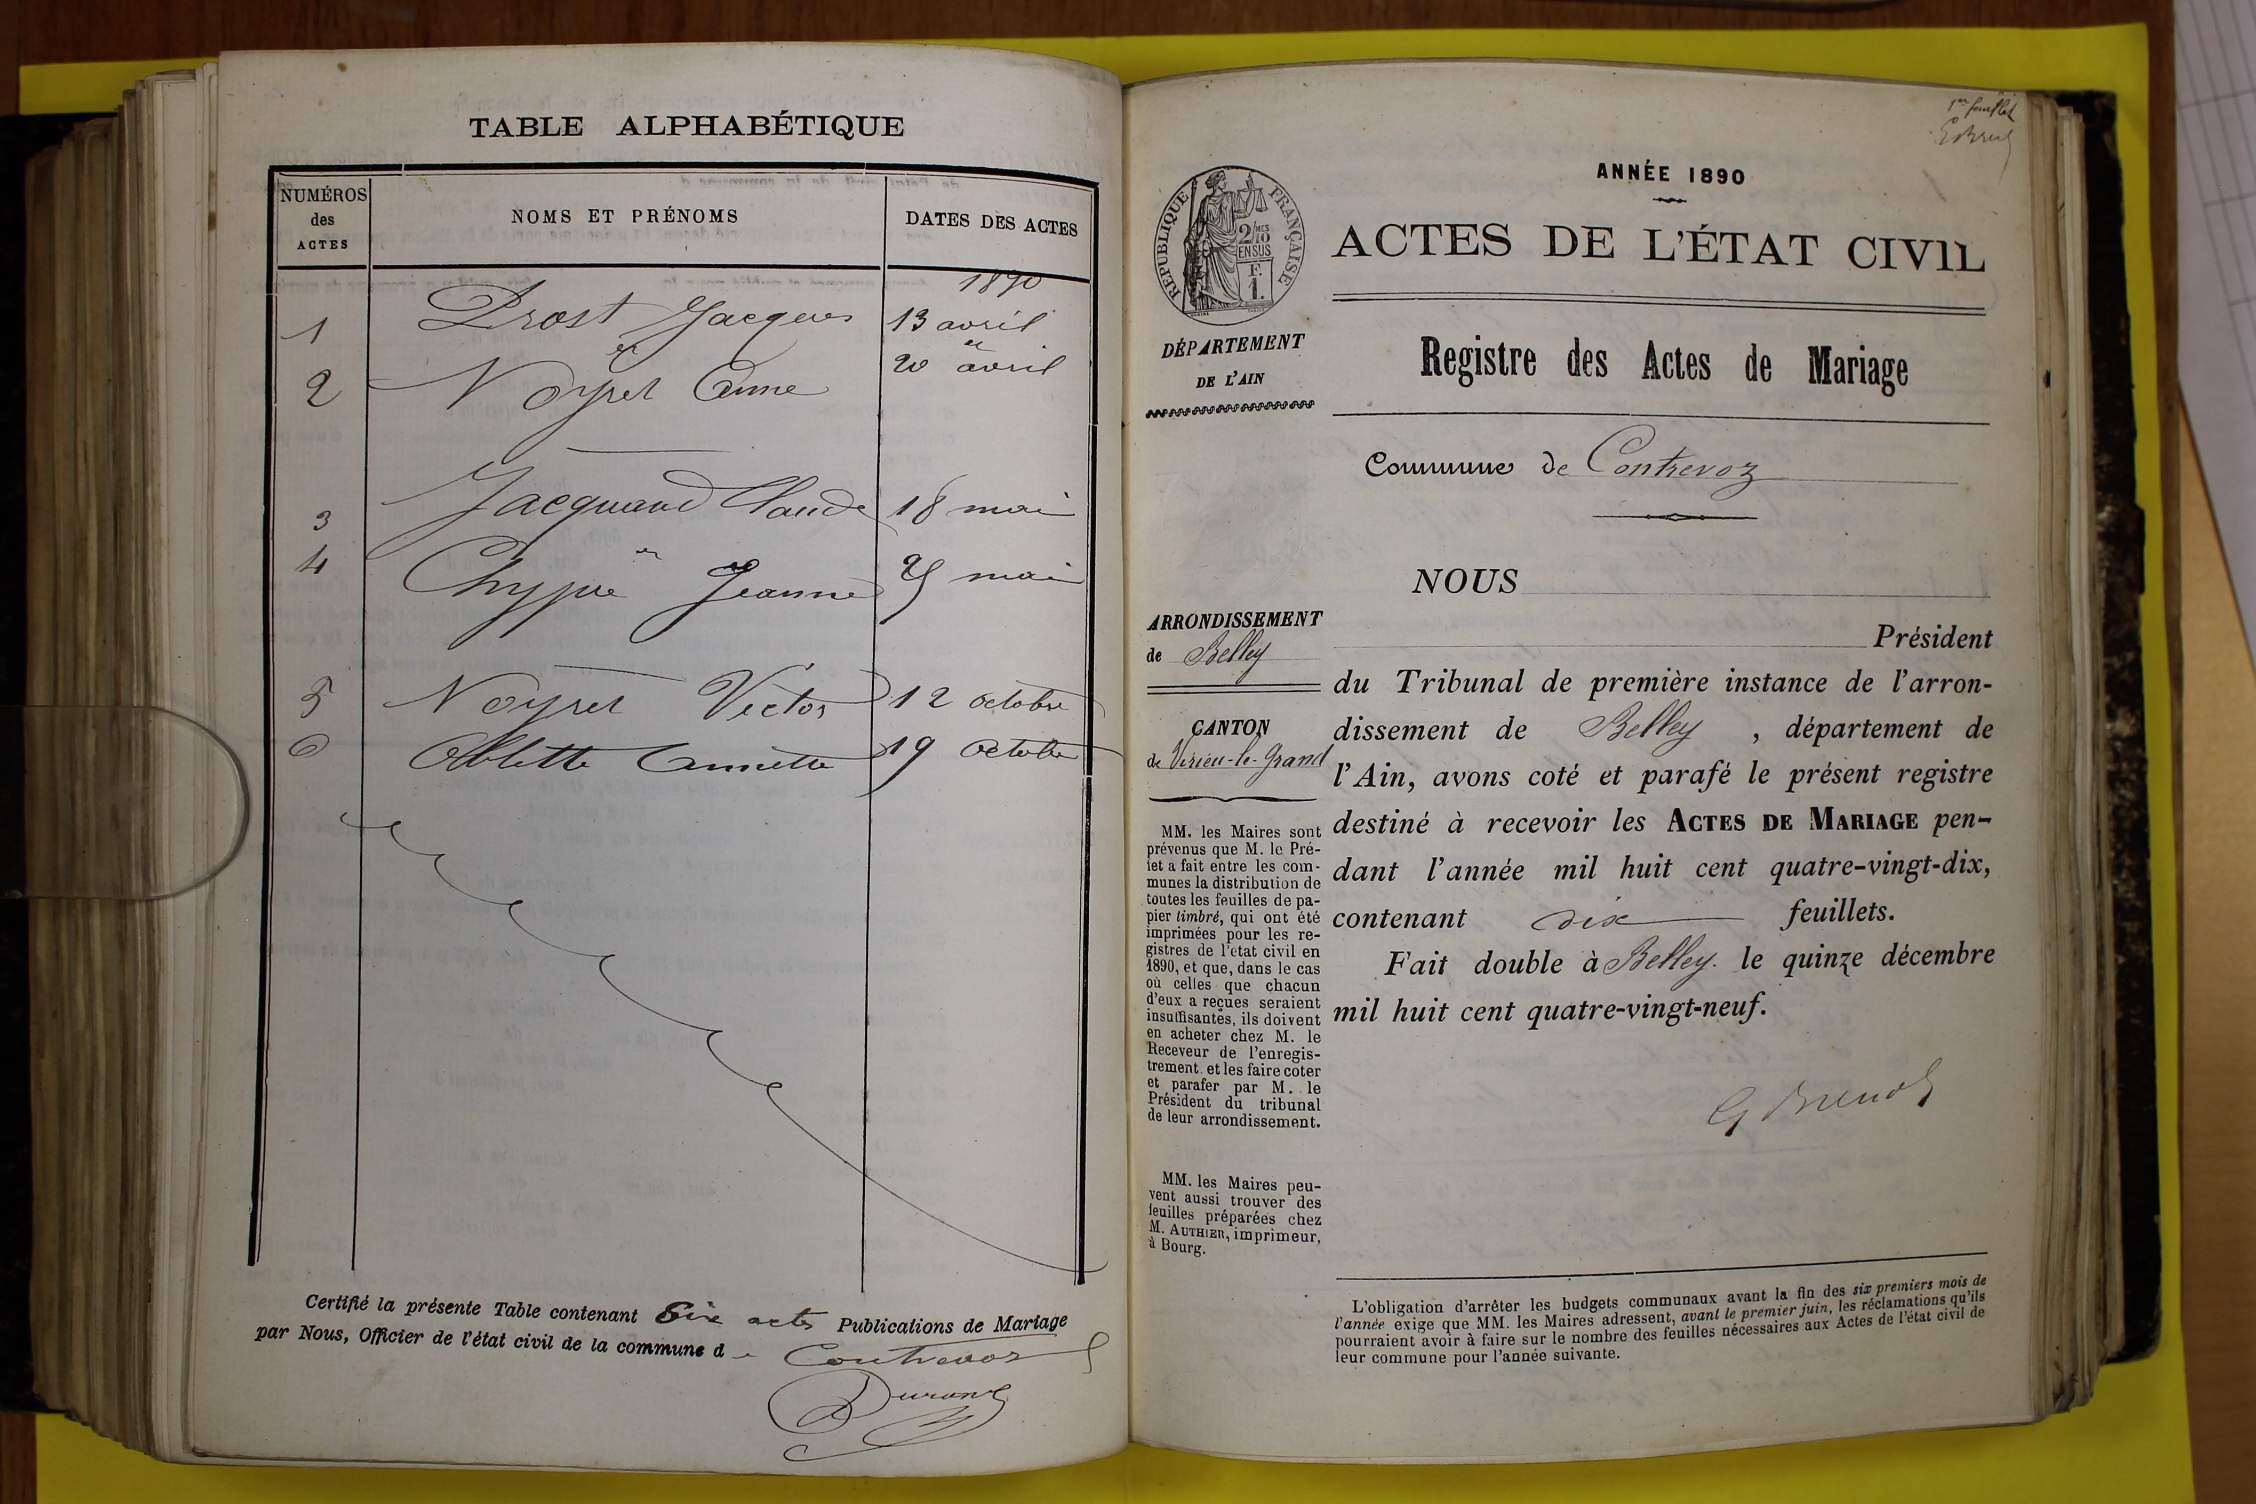 TABLE ALPHABÉTIQUE
NUMÉROS des ACTES
NOMS ET PRÉNOMS
DATES DES ACTES
1890
1 Prost Jacques 13 avril
et et
2 Noyret Anne 20 avril
3 Jacquand Claude 18 mai
et
4 Chypre Jeanne 25 mai
5 Noyret Victor 12 octobre
6 Ablette Annette 19 octobre
Certifié la présente Table contenant Six actes Publications de Mariage
par Nous, Officier de l'état civil de la commune de Contrevoz
Durand
1er feuillet
ANNÉE 1890
RÉPUBLIQUE FRANÇAISE
2/10 MES
EN SUS
F.
1.
ACTES DE L'ÉTAT CIVIL
DÉPARTEMENT
DE L'AIN
Registre des Actes de Mariage
Commune de Contrevoz
NOUS
ARRONDISSEMENT
de Belley
CANTON
de Virieu-le-Grand
MM. les Maires sont
prévenus que M. le Pré-
fet a fait entre les com-
munes la distribution de
toutes les feuilles de pa-
pier timbré, qui ont été
imprimées pour les re-
gistres de l'état civil en
1890, et que, dans le cas
où celles que chacun
d'eux a reçues seraient
insuffisantes, ils doivent
en acheter chez M. le
Receveur de l'enregis-
trement et les faire coter
et parafer par M. le
Président du tribunal
de leur arrondissement.
MM. les Maires peu-
vent aussi trouver des
feuilles préparées chez
M. AUTHIER, imprimeur,
à Bourg.
Président
du Tribunal de première instance de l'arron-
dissement de Belley , département de
l'Ain, avons coté et parafé le présent registre
destiné à recevoir les ACTES DE MARIAGE pen-
dant l'année mil huit cent quatre-vingt-dix,
contenant six feuillets.
Fait double à Belley. le quinze décembre
mil huit cent quatre-vingt-neuf.
L'obligation d'arrêter les budgets communaux avant la fin des six premiers mois de
l'année exige que MM. les Maires adressent, avant le premier juin, les réclamations qu'ils
pourraient avoir à faire sur le nombre des feuilles nécessaires aux Actes de l'état civil de
leur commune pour l'année suivante.